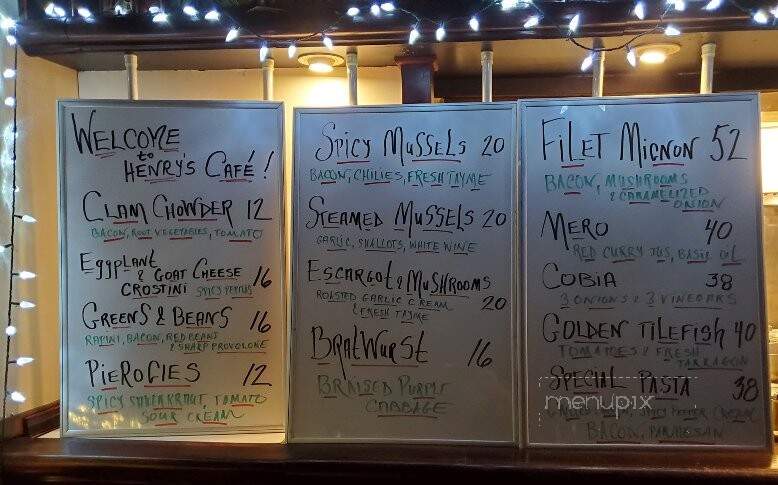 WELCOME
to
HENRY'S CAFÉ!
CLAM CHOWDER 12
BACON, ROOT VEGETABLES, TOMATO
EGGPLANT
& GOAT CHEESE
CROSTINI 16
GREENS & BEANS 16
RAPINI, BACON, RED BEANS
& SHARP PROVOLONE
PIEROGIES 12
SPICY SAUERKRAUT, TOMATO
SOUR CREAM
SPICY MUSSELS 20
BACON, CHILIES, FRESH THYME
STEAMED MUSSELS 20
GARLIC, SHALLOTS, WHITE WINE
ESCARGOT & MUSHROOMS
ROASTED GARLIC CREAM
& FRESH THYME 20
BRATWURST 16
BRAISED PURPLE
CABBAGE
FILET MIGNON 52
BACON, MUSHROOMS
& CARAMELIZED
ONION
MERO 40
RED CURRY JUS, BASIL OIL
COBIA 38
3 ONIONS & 3 VINEGARS
GOLDEN TILEFISH 40
TOMATOES & FRESH
TARRAGON
SPECIAL PASTA 38
menupix
CREAM
BACON, PARMESAN